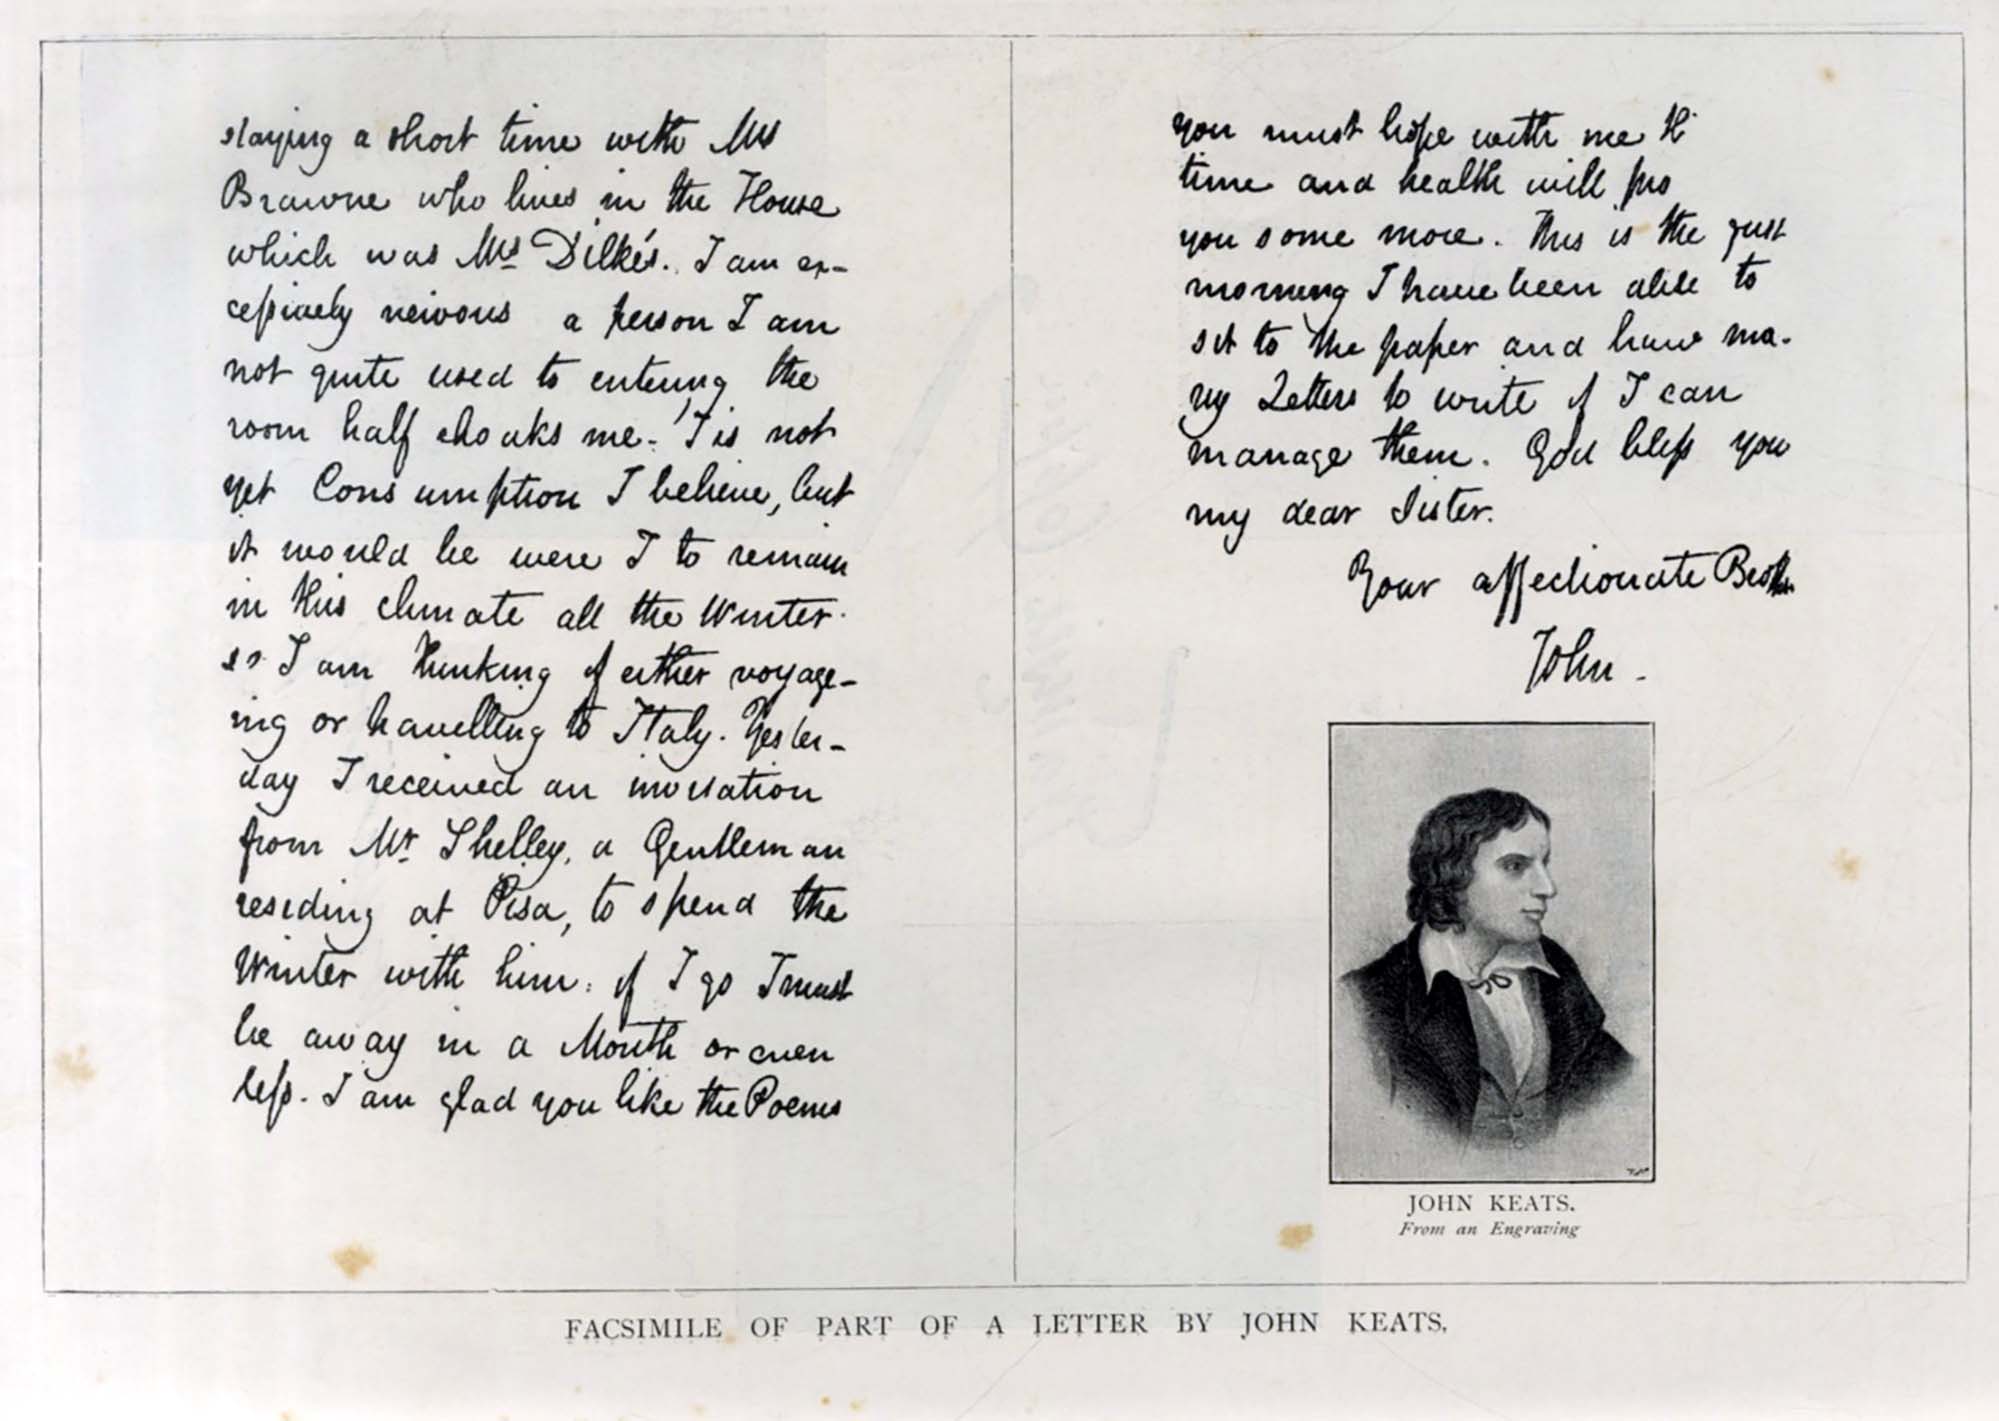 staying a short time with Mrs
Brawne who lives in the House
which was Mrs Dilke's. I am ex-
cessively nervous a person I am
not quite used to entering the
room half choaks me - 'Tis not
yet Consumption I believe, but
it would be were I to remain
in this climate all the Winter.
so I am thinking of either voyage-
ing or travelling to Italy. Yester-
day I received an invitation
from Mr Shelley, a Gentleman
residing at Pisa, to spend the
Winter with him: if I go I must
be away in a Month or even
less. I am glad you like the Poems
you must hope with me
time and health will pro
you some more. This is the first
morning I have been able to
sit to the paper and have ma-
ny Letters to write if I can
manage them. God bless you
my dear Sister.
Your affectionate Brother
John -
JOHN KEATS.
From an Engraving
FACSIMILE OF PART OF A LETTER BY JOHN KEATS.